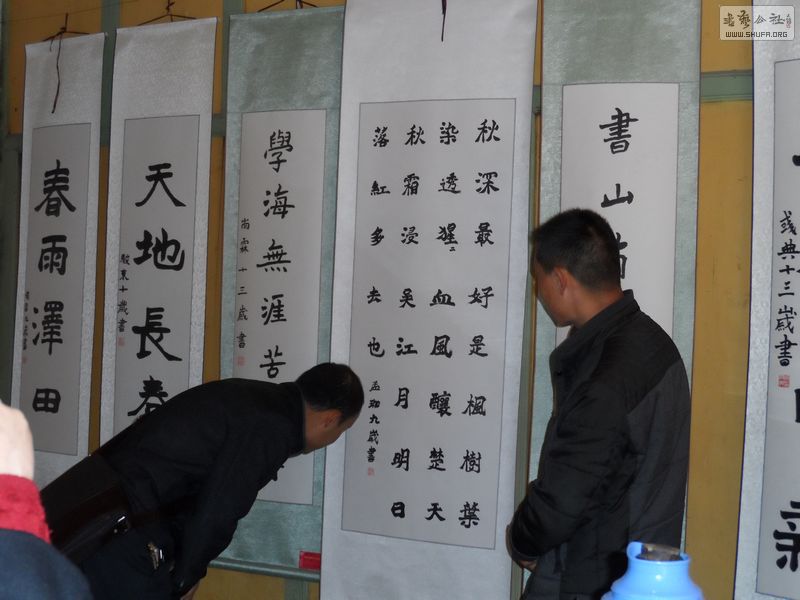 書藝公社
WWW.SHUFA.ORG
典十三歲書
新
書山
秋深最好是楓樹葉
染透猩〻血風釀楚天
秋霜浸吳江月明日
落紅多去也
孟珈九歲書
學海無涯苦
尚霖十三歲書
天地長春
殷東十歲書
春雨澤田